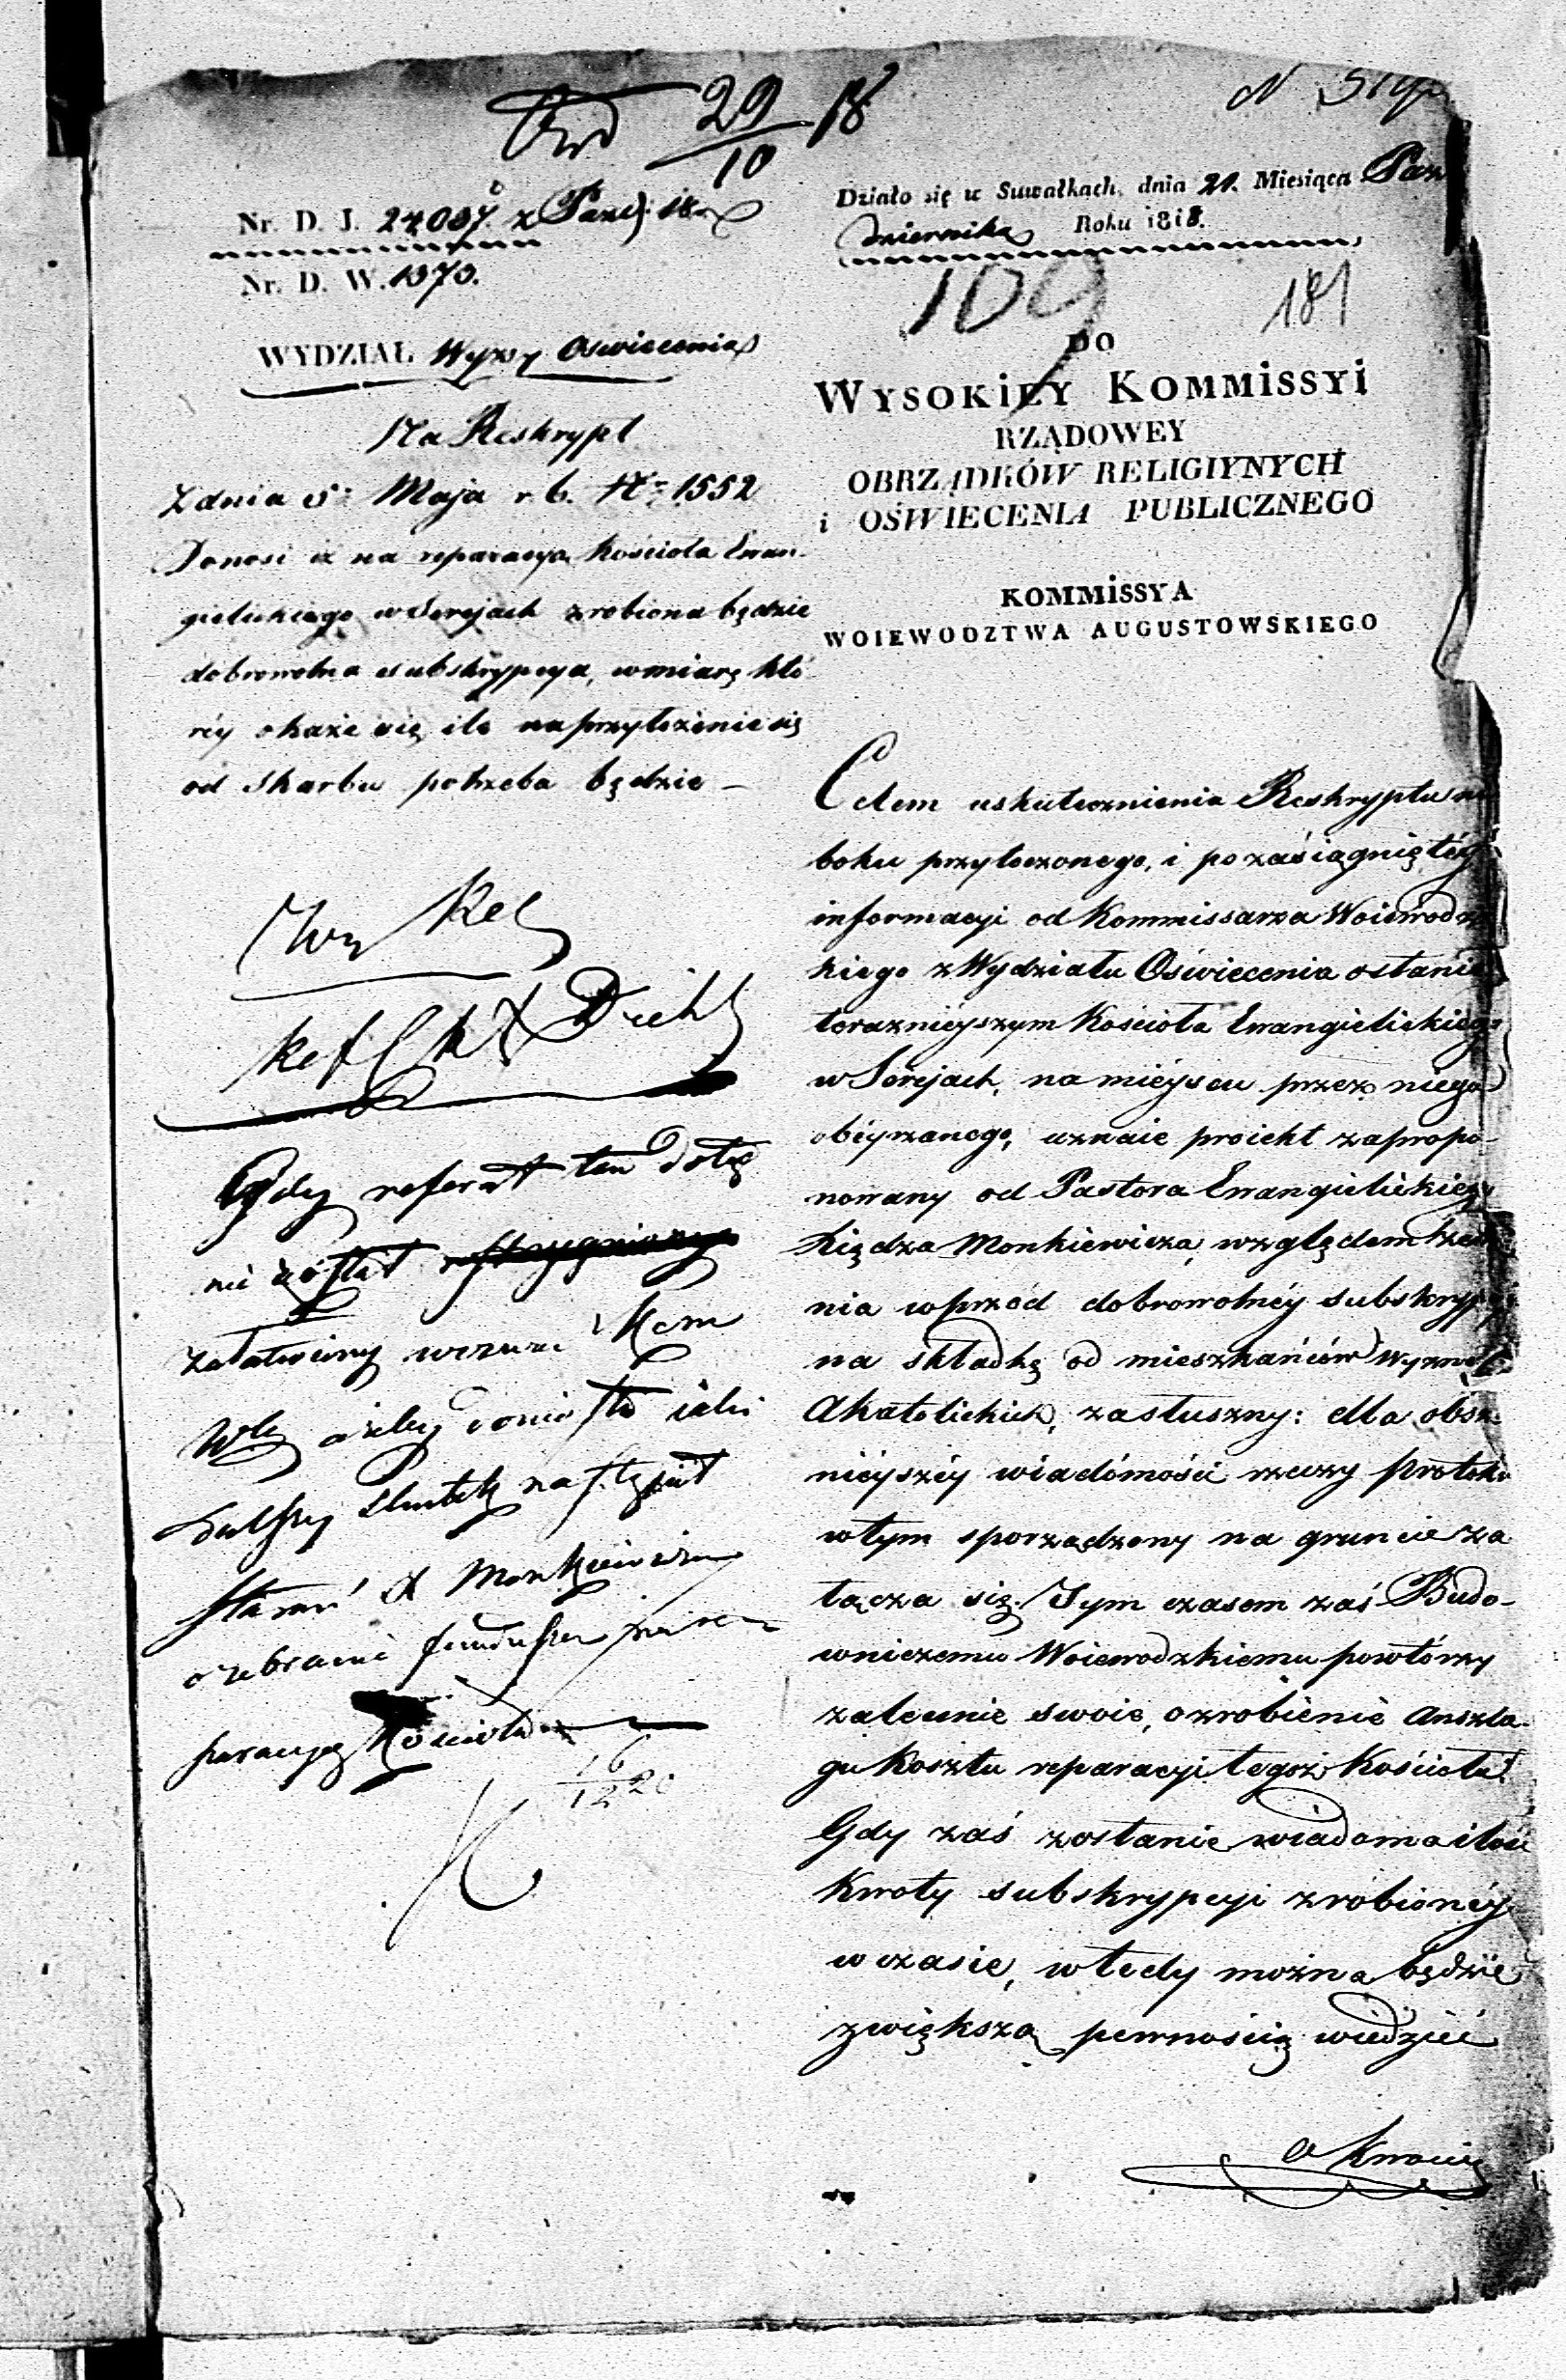 29/10 18
Nr. D. J. 24087. z Paźd: 18
Nr. D. W. 1070.
WYDZIAŁ Wyzn: Oswiecenia
Na Reskrypt
Z dnia 5º Maja r. b. Nº 1552
Donosi iż na reparacyą Kościoła Ewan-
gielickiego w Serejach zrobiona będzie
dobrowolna subskrypcya, w miarę któ-
réy okaże się ile na przyłożenie się
od Skarbu potrzeba będzie —
Gdy referat ten dotąd
nie został
załatwiony wezwać Kom
Wdy ażeby doniosła iaki
dalszy skutek nastąpił
starań X Monkiewicza
o zebranie funduszu na re
paracyę Kościoła
16/12 20
Działo się w Suwałkach, dnia 21. Miesiąca Paź
dziernika Roku 1818.
109
181
DO
WYSOKIEY KOMMISSYI
RZĄDOWEY
OBRZĄDKÓW RELIGIYNYCH
i OŚWIECENIA PUBLICZNEGO
KOMMISSYA
WOIEWODZTWA AUGUSTOWSKIEGO
Celem uskutecznienia Reskryptu na
boku przytoczonego, i po zasiągniętéy
informacyi od Kommissarza Woiewodz
kiego z Wydziału Oświecenia o stanie
teraznieyszym Kościoła Ewangielickiego
w Serejach, na mieyscu przez niego
obeyrzanego, uznaie proiekt zapropo-
nowany od Pastora Ewangielickiego
Xiędza Monkiewicza, względem
nia wprzód dobrowolnéy subskrypcyi
na składkę od mieszkańców Wyznań
Akatolickich, za słuszny: dla obszer
nieyszéy wiadómości rzeczy Protokuł
w tym sporządzony na gruncie za
łącza się. Tym czasem zaś Budo-
wniczemu Woiewodzkiemu powtórzy
zalecenie swoie, o zrobienie Anszla-
gu Kosztu reparacyi tegoż Kościoła.
Gdy zaś zostanie wiadoma ilość
Kwoty subskrypcyi zrobionéy
w czasie, wtedy można będzie
z większą pewnością wiedzieć
o Kwocie